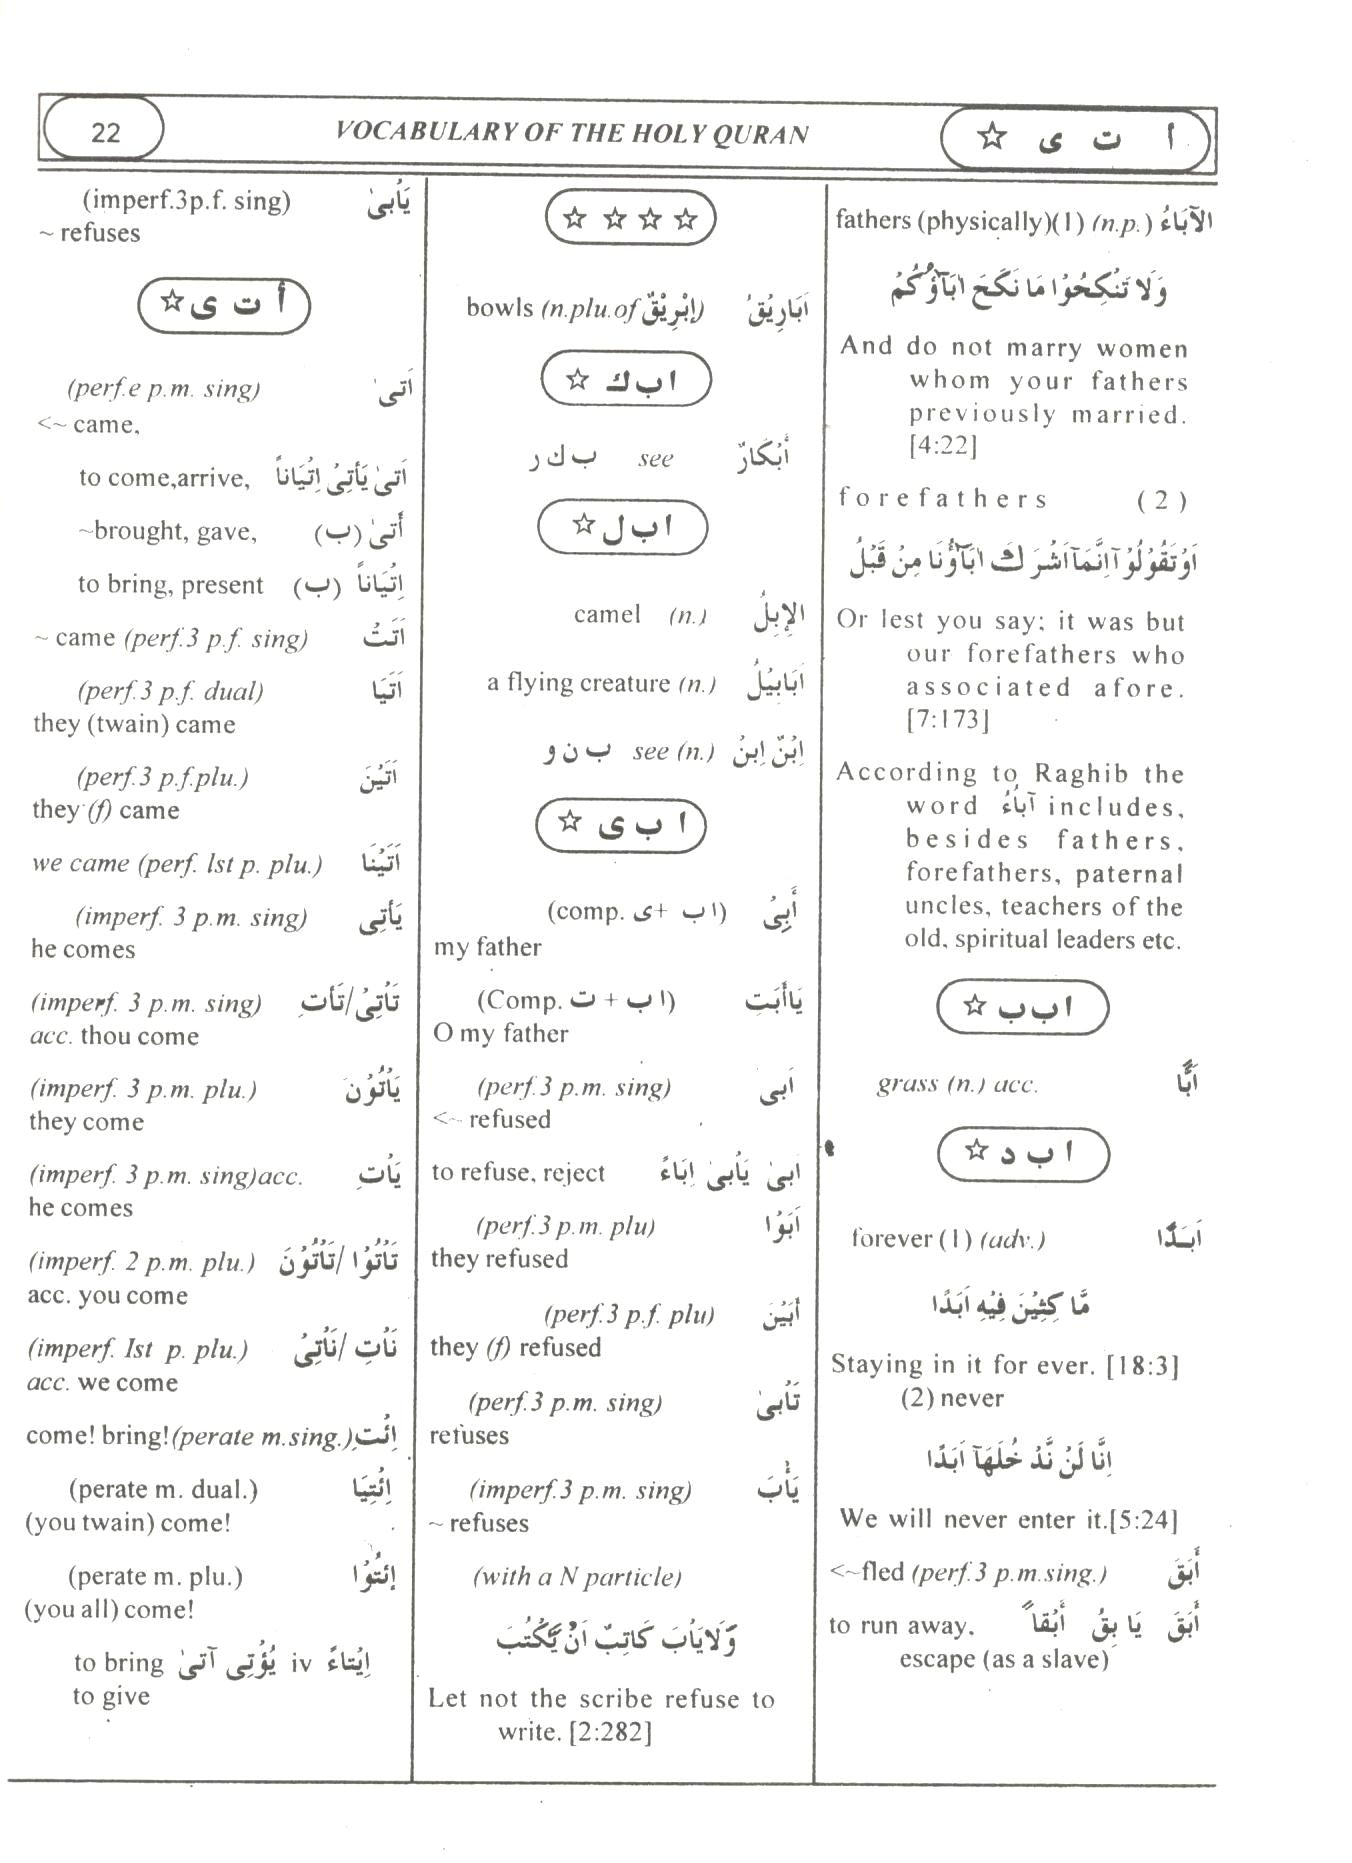 22 VOCABULARY OF THE HOLY QURAN ☆ ا ت ى
fathers (physically)(1) (n.p.) الآبَاءُ
وَلَا تَنْكِحُوْا مَا نَكَحَ ابَآؤُكُمْ
And do not marry women
whom your fathers
previously married.
[4:22]
forefathers (2)
اَوْتَقُوْلُوْآ اِنَّمَآ اَشْرَكَ ابَآؤُنَا مِنْ قَبْلُ
Or lest you say; it was but
our forefathers who
associated afore.
[7:173]
According to Raghib the
word آبَاءُ includes,
besides fathers,
forefathers, paternal
uncles, teachers of the
old, spiritual leaders etc.
☆ ا ب ب
grass (n.) acc. اَبًّا
☆ ا ب د
forever (1) (adv.) اَبَدًا
مَّا كِثِيْنَ فِيْهِ اَبَدًا
Staying in it for ever. [18:3]
(2) never
اِنَّا لَنْ نَّدْ خُلَهَآ اَبَدًا
We will never enter it.[5:24]
<~fled (perf.3 p.m.sing.) أَبَقَ
to run away, أَبَقَ يَا بِقُ أَبْقاً
escape (as a slave)
☆ ☆ ☆ ☆
bowls (n.plu.of اِبْرِيْقٌ) اَبَارِيْقُ
☆ ا ب ك
ب ك ر see أَبْكَارٌ
☆ ا ب ل
camel (n.) الإِبِلُ
a flying creature (n.) اَبَابِيْلُ
ب ن و see (n.) اِبْنٌ اِبنُ
☆ ا ب ى
(comp. ا ب +ى) أَبِىْ
my father
(Comp. ا ب + ت) يَاأَبَتِ
O my father
(perf.3 p.m. sing) اَبى
<~ refused
to refuse, reject اَبىٰ يَأْبىٰ اِبَاءً
(perf.3 p.m. plu) اَبَوْا
they refused
(perf.3 p.f. plu) أَبَيْنَ
they (f) refused
(perf.3 p.m. sing) تَأْبىٰ
refuses
(imperf.3 p.m. sing) يَأْبَ
~ refuses
(with a N particle)
وَلَايَأْبَ كَاتِبٌ اَنْ يَّكْتُبَ
Let not the scribe refuse to
write. [2:282]
(imperf.3p.f. sing) يَأْبىٰ
~ refuses
☆ أ ت ى
(perf.e p.m. sing) اَتىٰ
<~ came,
to come,arrive, اَتىٰ يَأْتِىْ اِتْيَاناً
~brought, gave, (ب) أَتىٰ
to bring, present (ب) اِتْيَاناً
~ came (perf.3 p.f. sing) اَتَتْ
(perf.3 p.f. dual) اَتَيَا
they (twain) came
(perf.3 p.f.plu.) اَتَيْنَ
they (f) came
we came (perf. lst p. plu.) اَتَيْنَا
(imperf. 3 p.m. sing) يَأْتِى
he comes
(imperf. 3 p.m. sing) تَأْتِىْ/تَأْتِ
acc. thou come
(imperf. 3 p.m. plu.) يَأْتُوْنَ
they come
(imperf. 3 p.m. sing)acc. يَأْتِ
he comes
(imperf. 2 p.m. plu.) تَأْتُوْا/تَأْتُوْنَ
acc. you come
(imperf. Ist p. plu.) نَأْتِ/نَأْتِىْ
acc. we come
come! bring!(perate m.sing.) اِئْتِ
(perate m. dual.) اِئْتِيَا
(you twain) come!
(perate m. plu.) اِئْتُوْا
(you all) come!
to bring آتىٰ يُؤْتِى iv اِيْتاءً
to give